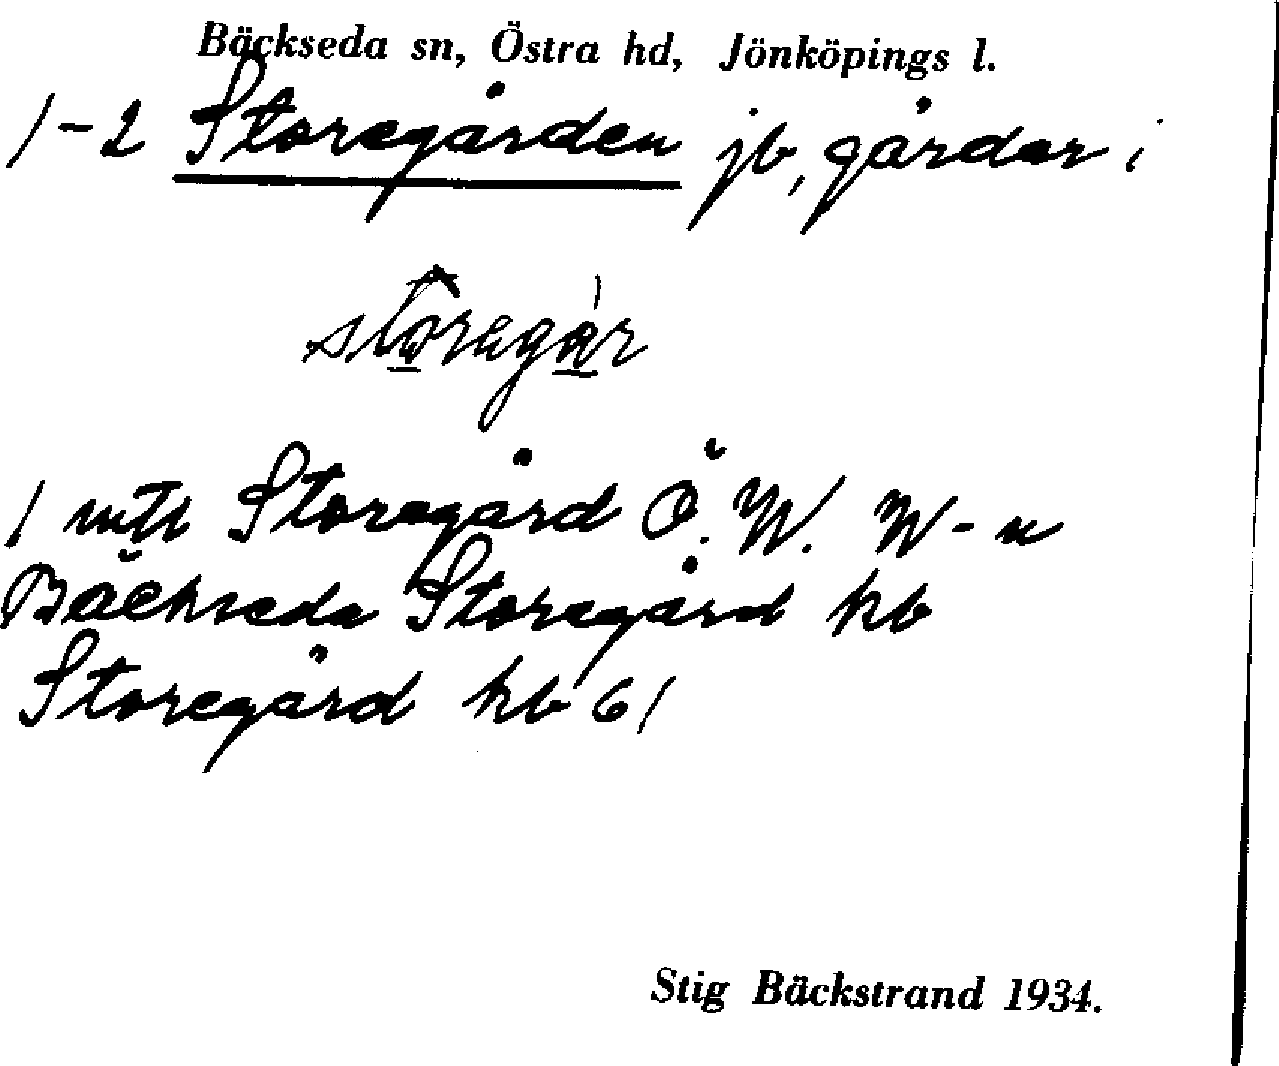 Bäckseda sn, Östra hd, Jönköpings l.
1-2 Storegården jb, gårdar i
1 mtl Storegård Ö. W. W-u
Bäckseda Storegård kb
Storegård kb 61
Stig Bäckstrand 1934.